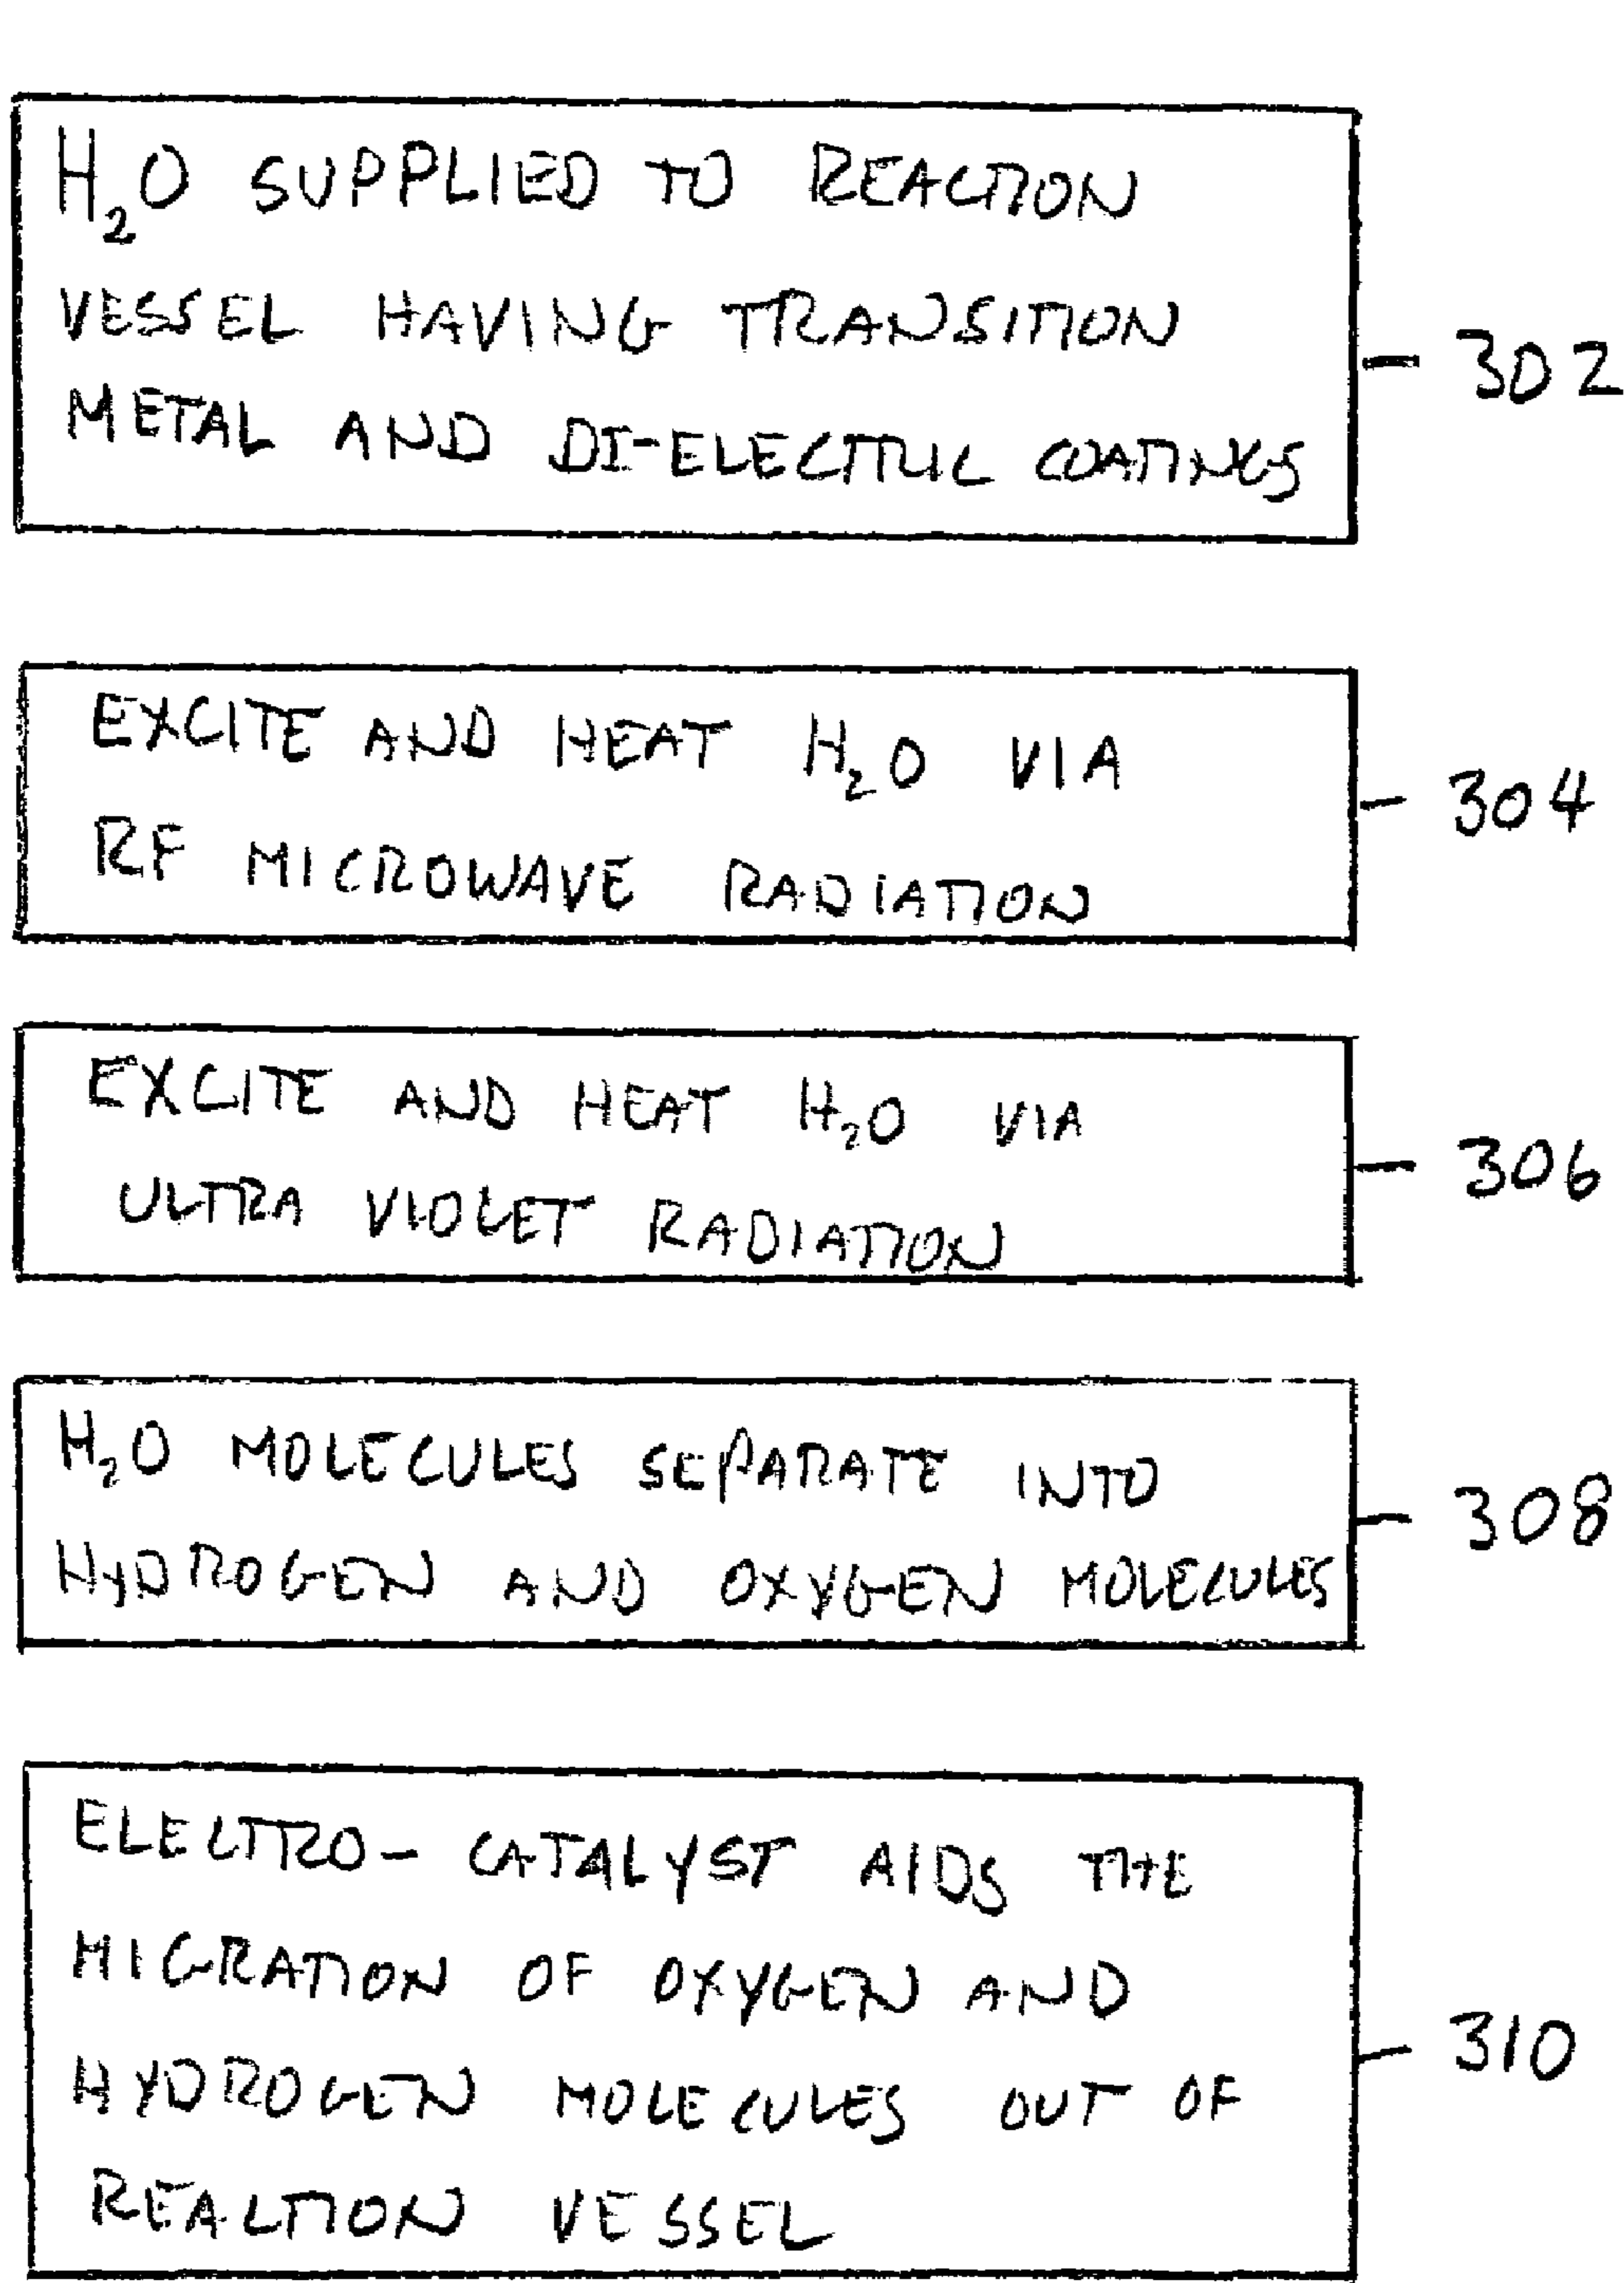 H₂O SUPPLIED TO REACTION
VESSEL HAVING TRANSITION
METAL AND DI-ELECTRIC COATINGS
302
EXCITE AND HEAT H₂O VIA
RF MICROWAVE RADIATION
304
EXCITE AND HEAT H₂O VIA
ULTRA VIOLET RADIATION
306
H₂O MOLECULES SEPARATE INTO
HYDROGEN AND OXYGEN MOLECULES
308
ELECTRO-CATALYST AIDS THE
MIGRATION OF OXYGEN AND
HYDROGEN MOLECULES OUT OF
REACTION VESSEL
310